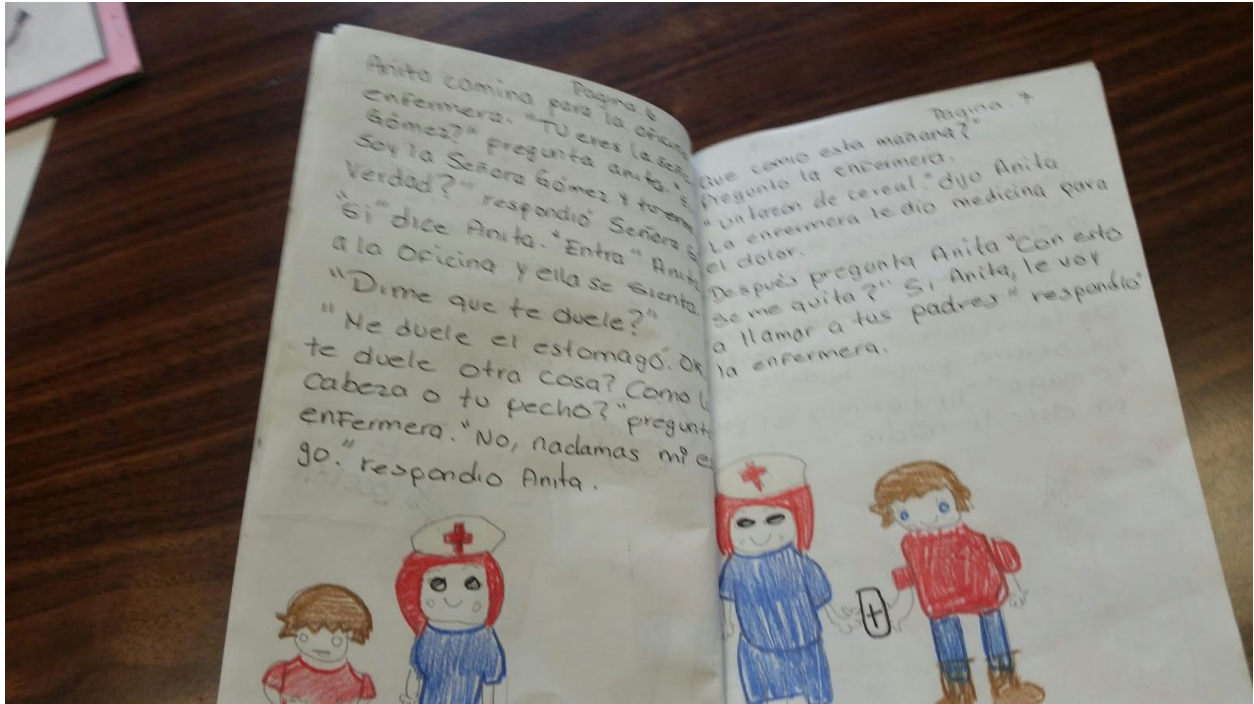 Pagina 6
Anita camina para la oficina
enfermera. "Tu eres la señ
Gómez?" pregunta anita. "S
Soy la Señora Gómez y tu er
verdad?" respondió Señora G
"Si" dice Anita. "Entra" Anita
a la oficina y ella se sienta.
"Dime que te duele?"
"Me duele el estomago. OK
te duele otra cosa? Como l
cabeza o tu pecho?" pregunt
enfermera. "No, nadamas mi e
go." respondio Anita.
Pagina. 7
que comio esta mañana?"
Pregunto la enfermera.
un tazon de cereal." dijo Anita
La enfermera le dio medicina para
el dolor.
Después pregonta Anita "Con esto
se me quita?" "Si Anita, le voy
a llamar a tus padres" respondio
la enfermera.